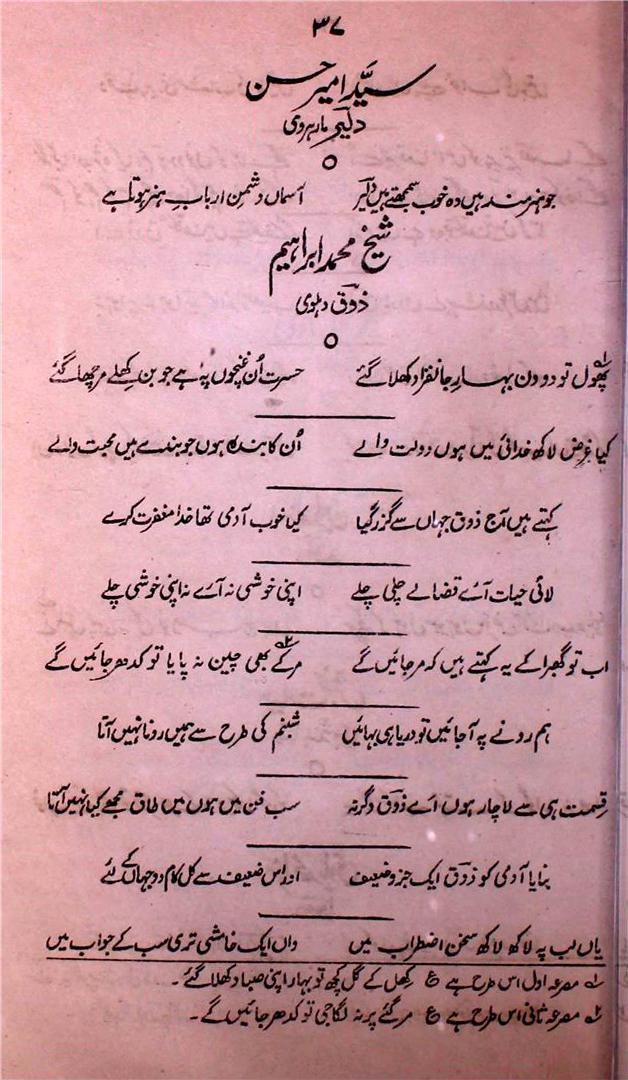 ۳۷
سیّد امیر حسن
دلیر مارہروی
جو ہنر مند ہیں وہ خوب سمجھتے ہیں دلیر آسماں دشمنِ اربابِ ہنر ہوتا ہے
شیخ محمد ابراہیم
ذوق دہلوی
پھول تو دو دن بہارِ جانفزا دکھلا گئے ۱؎ حسرت اُن غنچوں پہ ہے جو بن کھلے مرجھا گئے
کیا غرض لاکھ خدائی میں ہوں دولت والے اُن کا بندہ ہوں جو بندے ہیں محبت والے
کہتے ہیں آج ذوق جہاں سے گزر گیا کیا خوب آدمی تھا خدا مغفرت کرے
لائی حیات آئے قضا لے چلی چلے اپنی خوشی نہ آئے نہ اپنی خوشی چلے
اب تو گھبرا کے یہ کہتے ہیں کہ مر جائیں گے مر کے بھی چین نہ پایا تو کدھر جائیں گے ۲؎
ہم رونے پہ آ جائیں تو دریا ہی بہائیں شبنم کی طرح سے ہمیں رونا نہیں آتا
قسمت ہی سے لاچار ہوں اے ذوق وگرنہ سب فن میں ہوں میں طاق مجھے کیا نہیں آتا
بنایا آدمی کو ذوق ایک جزو ضعیف اور اس ضعیف سے کل کام دو جہاں کے لئے
یاں لب پہ لاکھ لاکھ سخن اضطراب میں واں ایک خامشی تری سب کے جواب میں
۱؎ مصرعہ اول اس طرح ہے ع کھل کے گل کچھ تو بہار اپنی صبا دکھلا گئے۔
۲؎ مصرعہ ثانی اس طرح ہے ع مر گئے پر نہ لگا جی تو کدھر جائیں گے۔